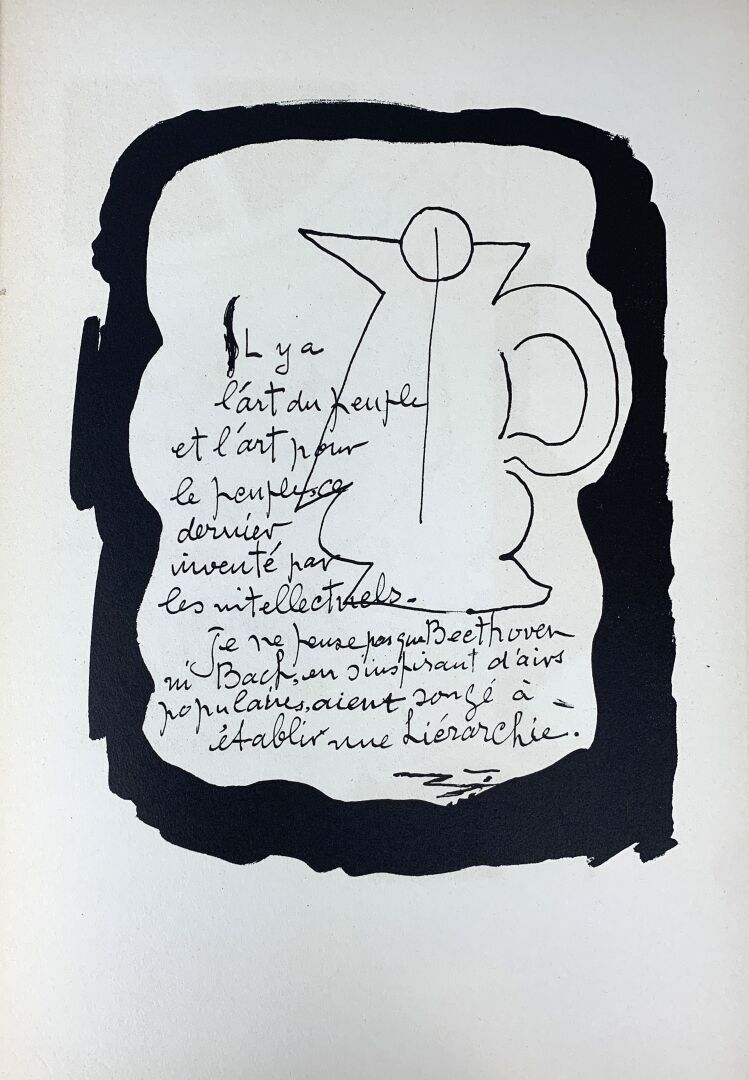 IL y a
l'art du peuple
et l'art pour
le peuple, ce
dernier
inventé par
les intellectuels.
Je ne pense pas que Beethoven
ni Bach, en s'inspirant d'airs
populaires, aient songé à
établir une hiérarchie.